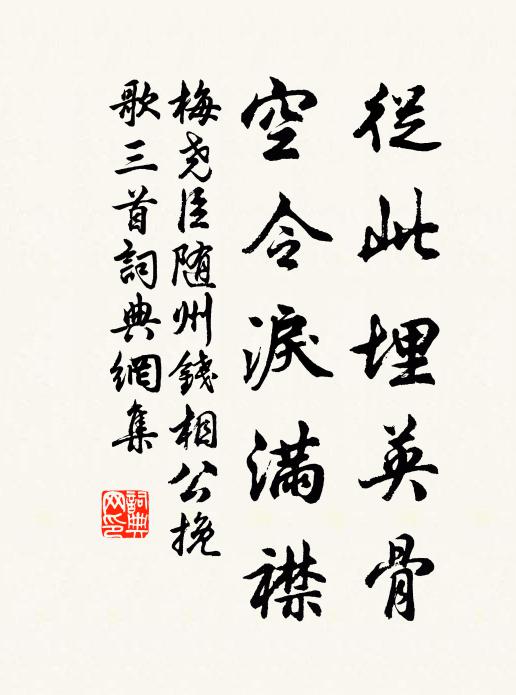 從此埋英骨
空令淚滿襟
梅尧臣随州錢相公挽
歌三首詞典網集
詞典網印